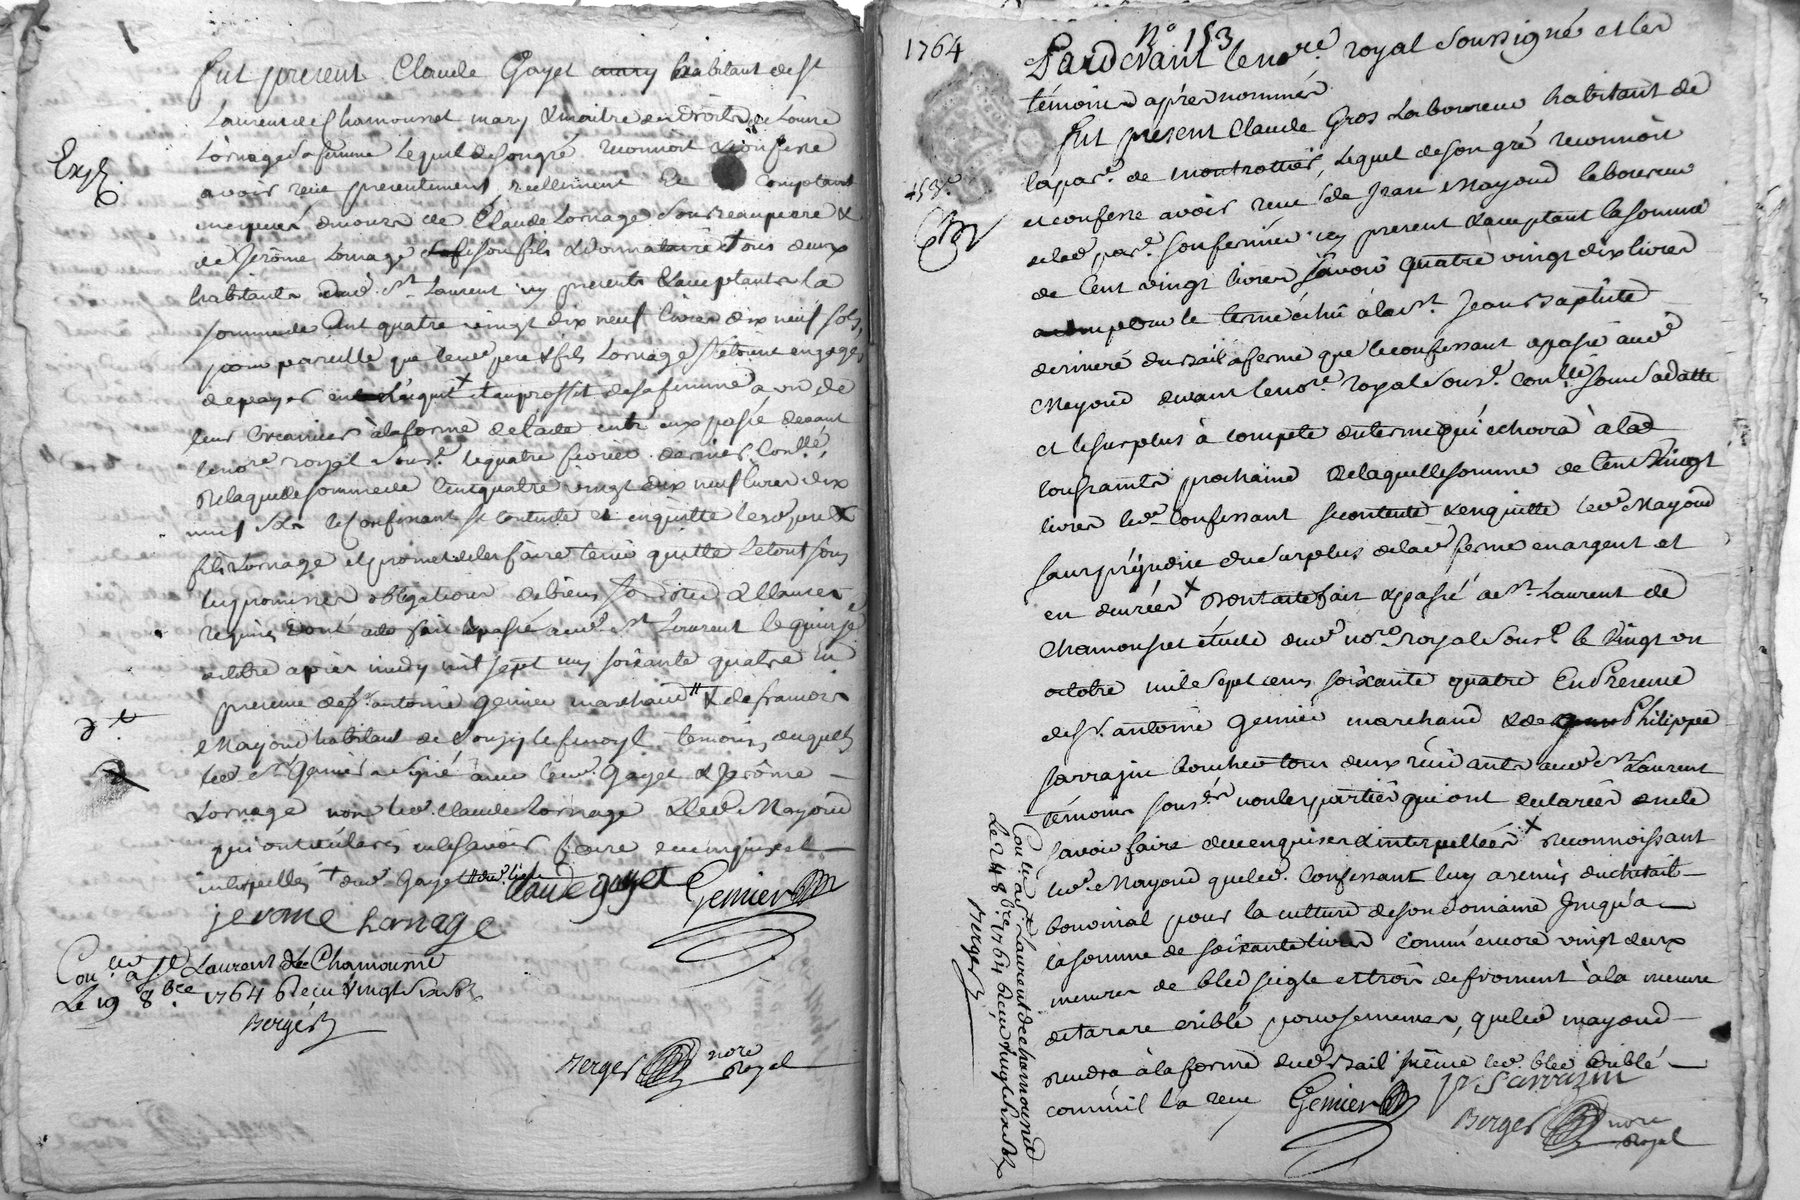 fut present Claude Gayet habitant de st
Laurent de Chamousset mary & maitre des droits de Louise
Lornage sa femme Lequel de son gré reconnoit & confesse
avoir reçu presentement réellement & comptant
de Claude Lornage son beaupere &
de Jérôme Lornage son fils & donnataire tous deux
habitants dud. St. Laurent icy presents & acceptants la
somme de Cent quatre vingt dix neuf livres dix neuf sols,
pour pareille que lesd. pere & fils Lornage s'étoient engagés
de payer et au proffit de sa femme a un de
leurs creanciers à la forme de l'acte entr'eux passé devant
le nore. royal sous.né le quatre fevrier dernier Con.llé,
De laquelle somme de Cent quatre vingt dix neuf livres dix
neuf sols le Confessant se contente & en quitte lesd. pere &
fils Lornage et promet de les faire tenir quitte le tout sous
les promesses obligations de biens &
requises Dont acte fait & passé aud. St. Laurent le quinze
octobre apres midy mil sept soixante quatre En
presence de sr. antoine Genier marchand & de francois
Mayoud habitant de Longessaigne temoins, desquels
led. Sr. Genier a signé avec led. Gayet & Jerôme
Lornage non led. Claude Lornage & led. Mayoud
qui ont déclaré ne le savoir faire de ce enquis et
interpellés dud. Gayet
Claude gayet Genier
jerome Lornage
Con.llé a St Laurent de Chamousset
Le 19 8bre. 1764 Reçu vingt six sols
Berger
Berger nore Royal
Exp.
1764
No 153
Pardevant le nore. royal soussigné et les
témoins après nommés
fut present Claude Gros Laboureur habitant de
la par.se de montrottier, Lequel de son gré reconnoit
et confesse avoir reçu de Jean Mayoud laboureur
de lad. par.se son fermier icy present & acceptant la somme
de Cent vingt livres sçavoir quatre vingt dix livres
pour le terme échû à la st. Jean Baptiste
derniere du bail a ferme que le confessant a passé aud.
Mayoud devant le nore. royal sous.né Con.llé sous sa datte
et le surplus à compte du terme qui échoira à lad.
toussaints prochaine De laquelle somme de Cent vingt
livres led. Confessant se contente & en quitte led. Mayoud
sans préjudice du surplus de lad. ferme en argent et
en denrées Dont acte fait & passé a St. Laurent de
Chamousset étude dud. nore. royal sous.né le vingt un
octobre mil sept cens soixante quatre En Presence
de sr. antoine Genier marchand & de Philippe
Sarrazin boucher tous deux résidants aud. St. Laurent
témoins sous.nés non les parties qui ont declarées ne le
savoir faire de ce enquises & interpellées reconnoissant
led. Mayoud que led. Confessant luy a remis du chetail
bovinal pour la culture de son domaine jusqu'a
la somme de soixante livres comm'encore vingt deux
mesures de bled seigle et trois de froment à la mesure
de tarare criblé pour semences, que led. mayoud
rendra à la forme dud. Bail même led. bled criblé
comm'il l'a reçu Genier P Sarrazin
Berger nore Royal
Con.llé a St Laurent de chamousset
Le 24 8bre. 1764 Reçu vingt six sols
Berger